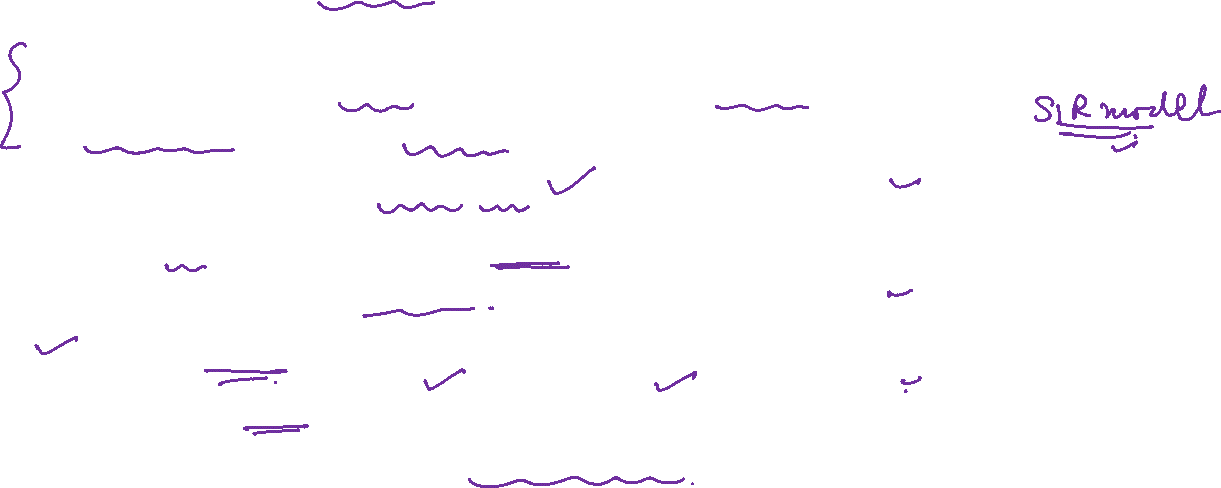 SLR model